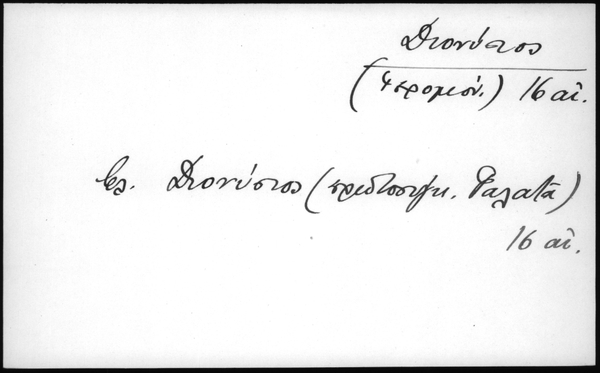 Διονύσιος
(ἱερομον.) 16 αἰ.
βλ. Διονύσιος (πρωτοσύγκ. Γαλατᾶ)
16 αἰ.